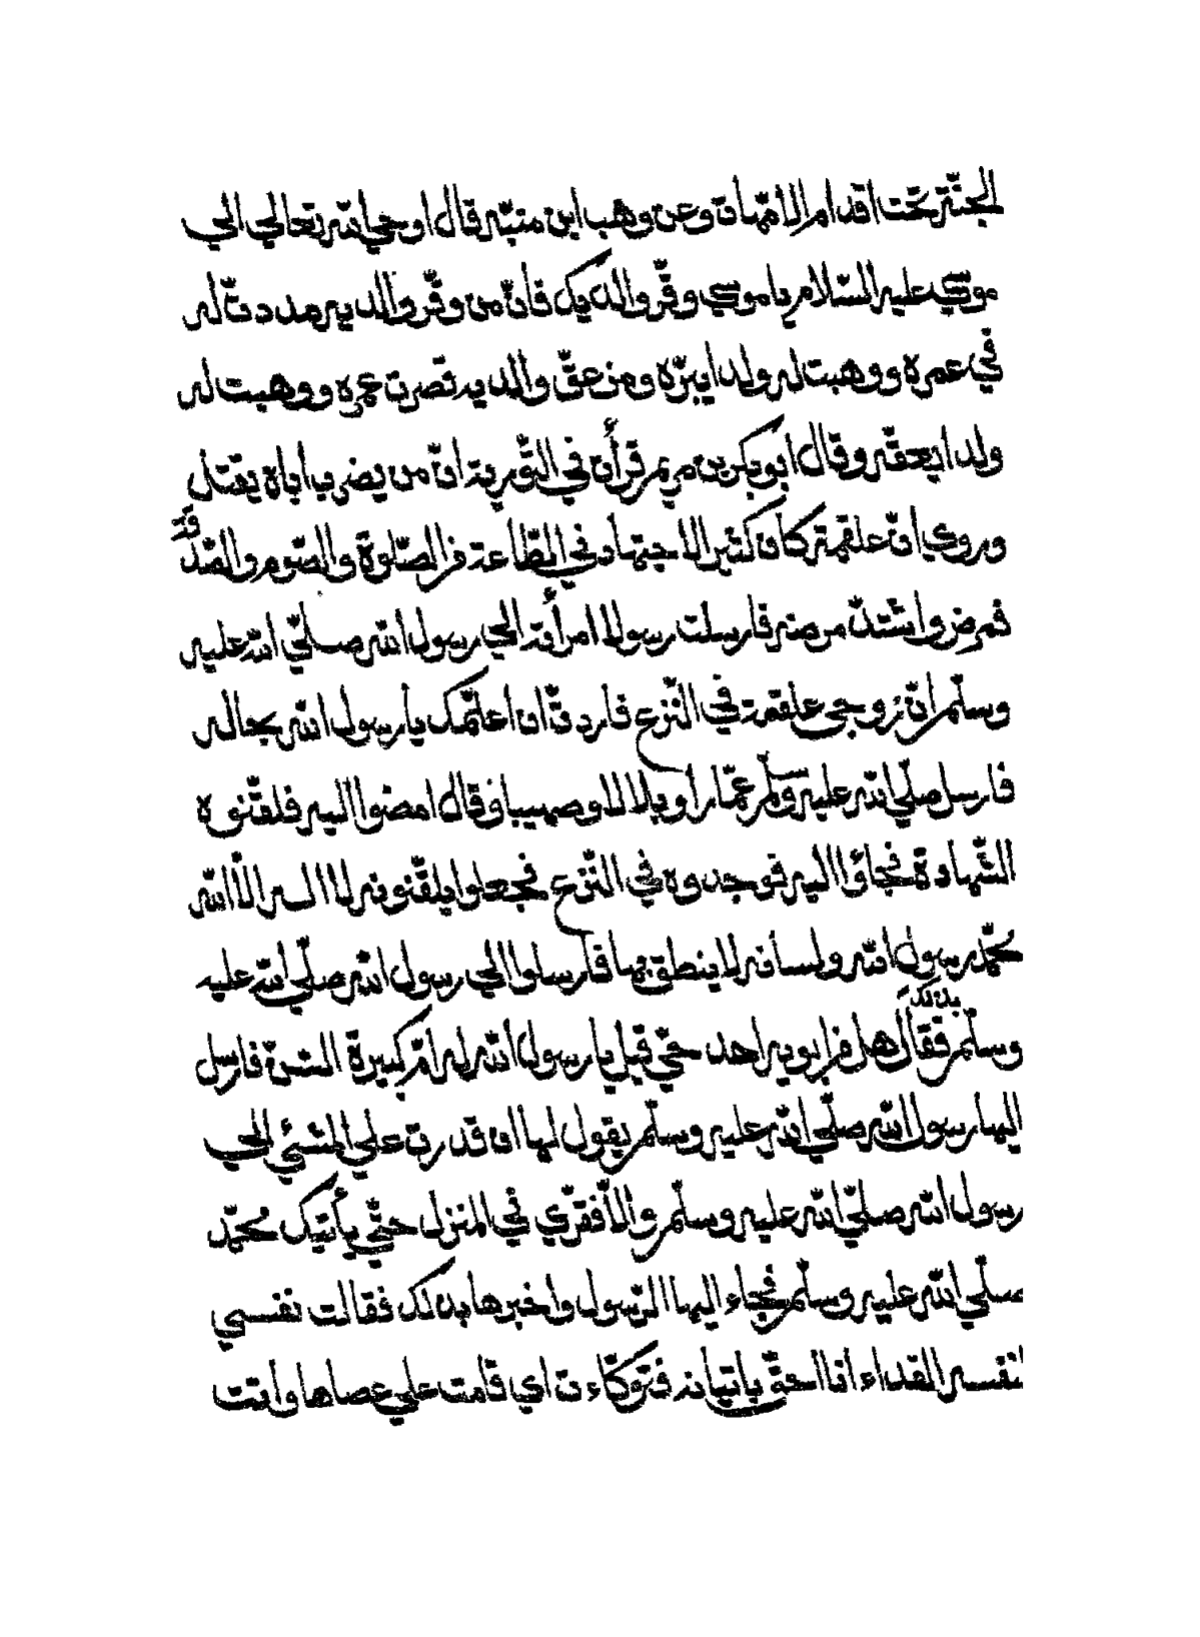 الجنّة تحت اقدام الأمّهات وعن وهب ابن منبّه قال اوحي الله تعالي الي
موسي عليه السّلام يا موسي وقّر والديك فانّ من وقّر والديه مددت له
في عمره ووهبت له ولدا يبرّه ومن عقّ والديه قصرت عمره ووهبت له
ولدا يعقّه وقال ابو بكر بن مريم قرأت في التّورية انّ من يضرب أباه يقتل
وروي انّ علقمة كان كثير الاجتهاد في الطّاعة من الصّلوة والصّوم والصّدقة
فمرض واشتدّ مرضه فارسلت رسولا امرأته الي رسول الله صلّي الله عليه
وسلّم انّ زوجي علقمة في النّزع فأردتّ ان اعلمك يا رسول الله بحاله
فارسل صلّي الله عليه وسلّم عمّارا وبلالا وصهيبا وقال امضوا اليه فلقّنوه
الشّهادة فجاؤا اليه فوجدوه في النّزع فجعلوا يلقّنونه لا اله الّا الله
محمّد رسول الله ولسانه لا ينطق بها فارسلوا الي رسول الله صلّي الله عليه
وسلّم بذلك فقال هل من ابويه احد حيّ قيل يا رسول الله له امّ كبيرة السّنّ فارسل
اليها رسول الله صلّي الله عليه وسلّم يقول لها ان قدرت علي المشي الي
رسول الله صلّي الله عليه وسلّم والّا فقرّي في المنزل حتّي يأتيك محمّد
صلّي الله عليه وسلّم فجاء اليها الرّسول واخبرها بذلك فقالت نفسي
لنفسه الفداء أنا احقّ باتيانه فتوكّاءت اي قامت علي عصاها وأتت